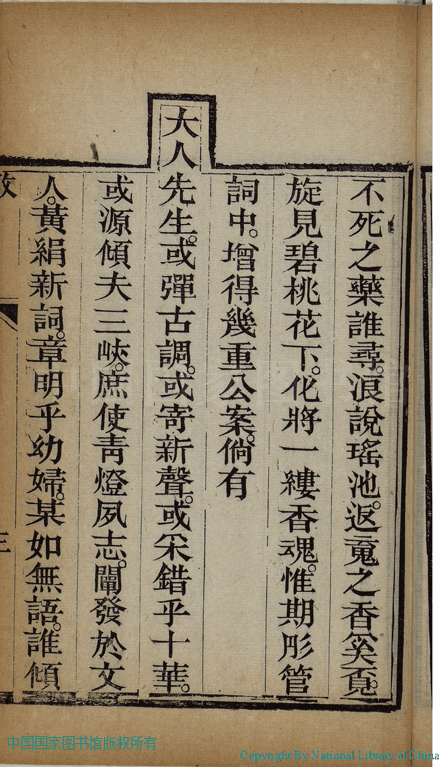 不死之藥誰尋。浪說瑤池。返䰟之香奚覔。
旋見碧桃花下。化將一縷香魂。惟期彤管
詞中。增得幾重公案。倘有
大人先生。或彈古調。或寄新聲。或采錯乎十華。
或源傾夫三峽。庶使靑燈夙志。闡發於文
人。黃絹新詞。章明乎幼婦。某如無語。誰傾
三
中国国家图书馆版权所有
Copyright By National Library of China